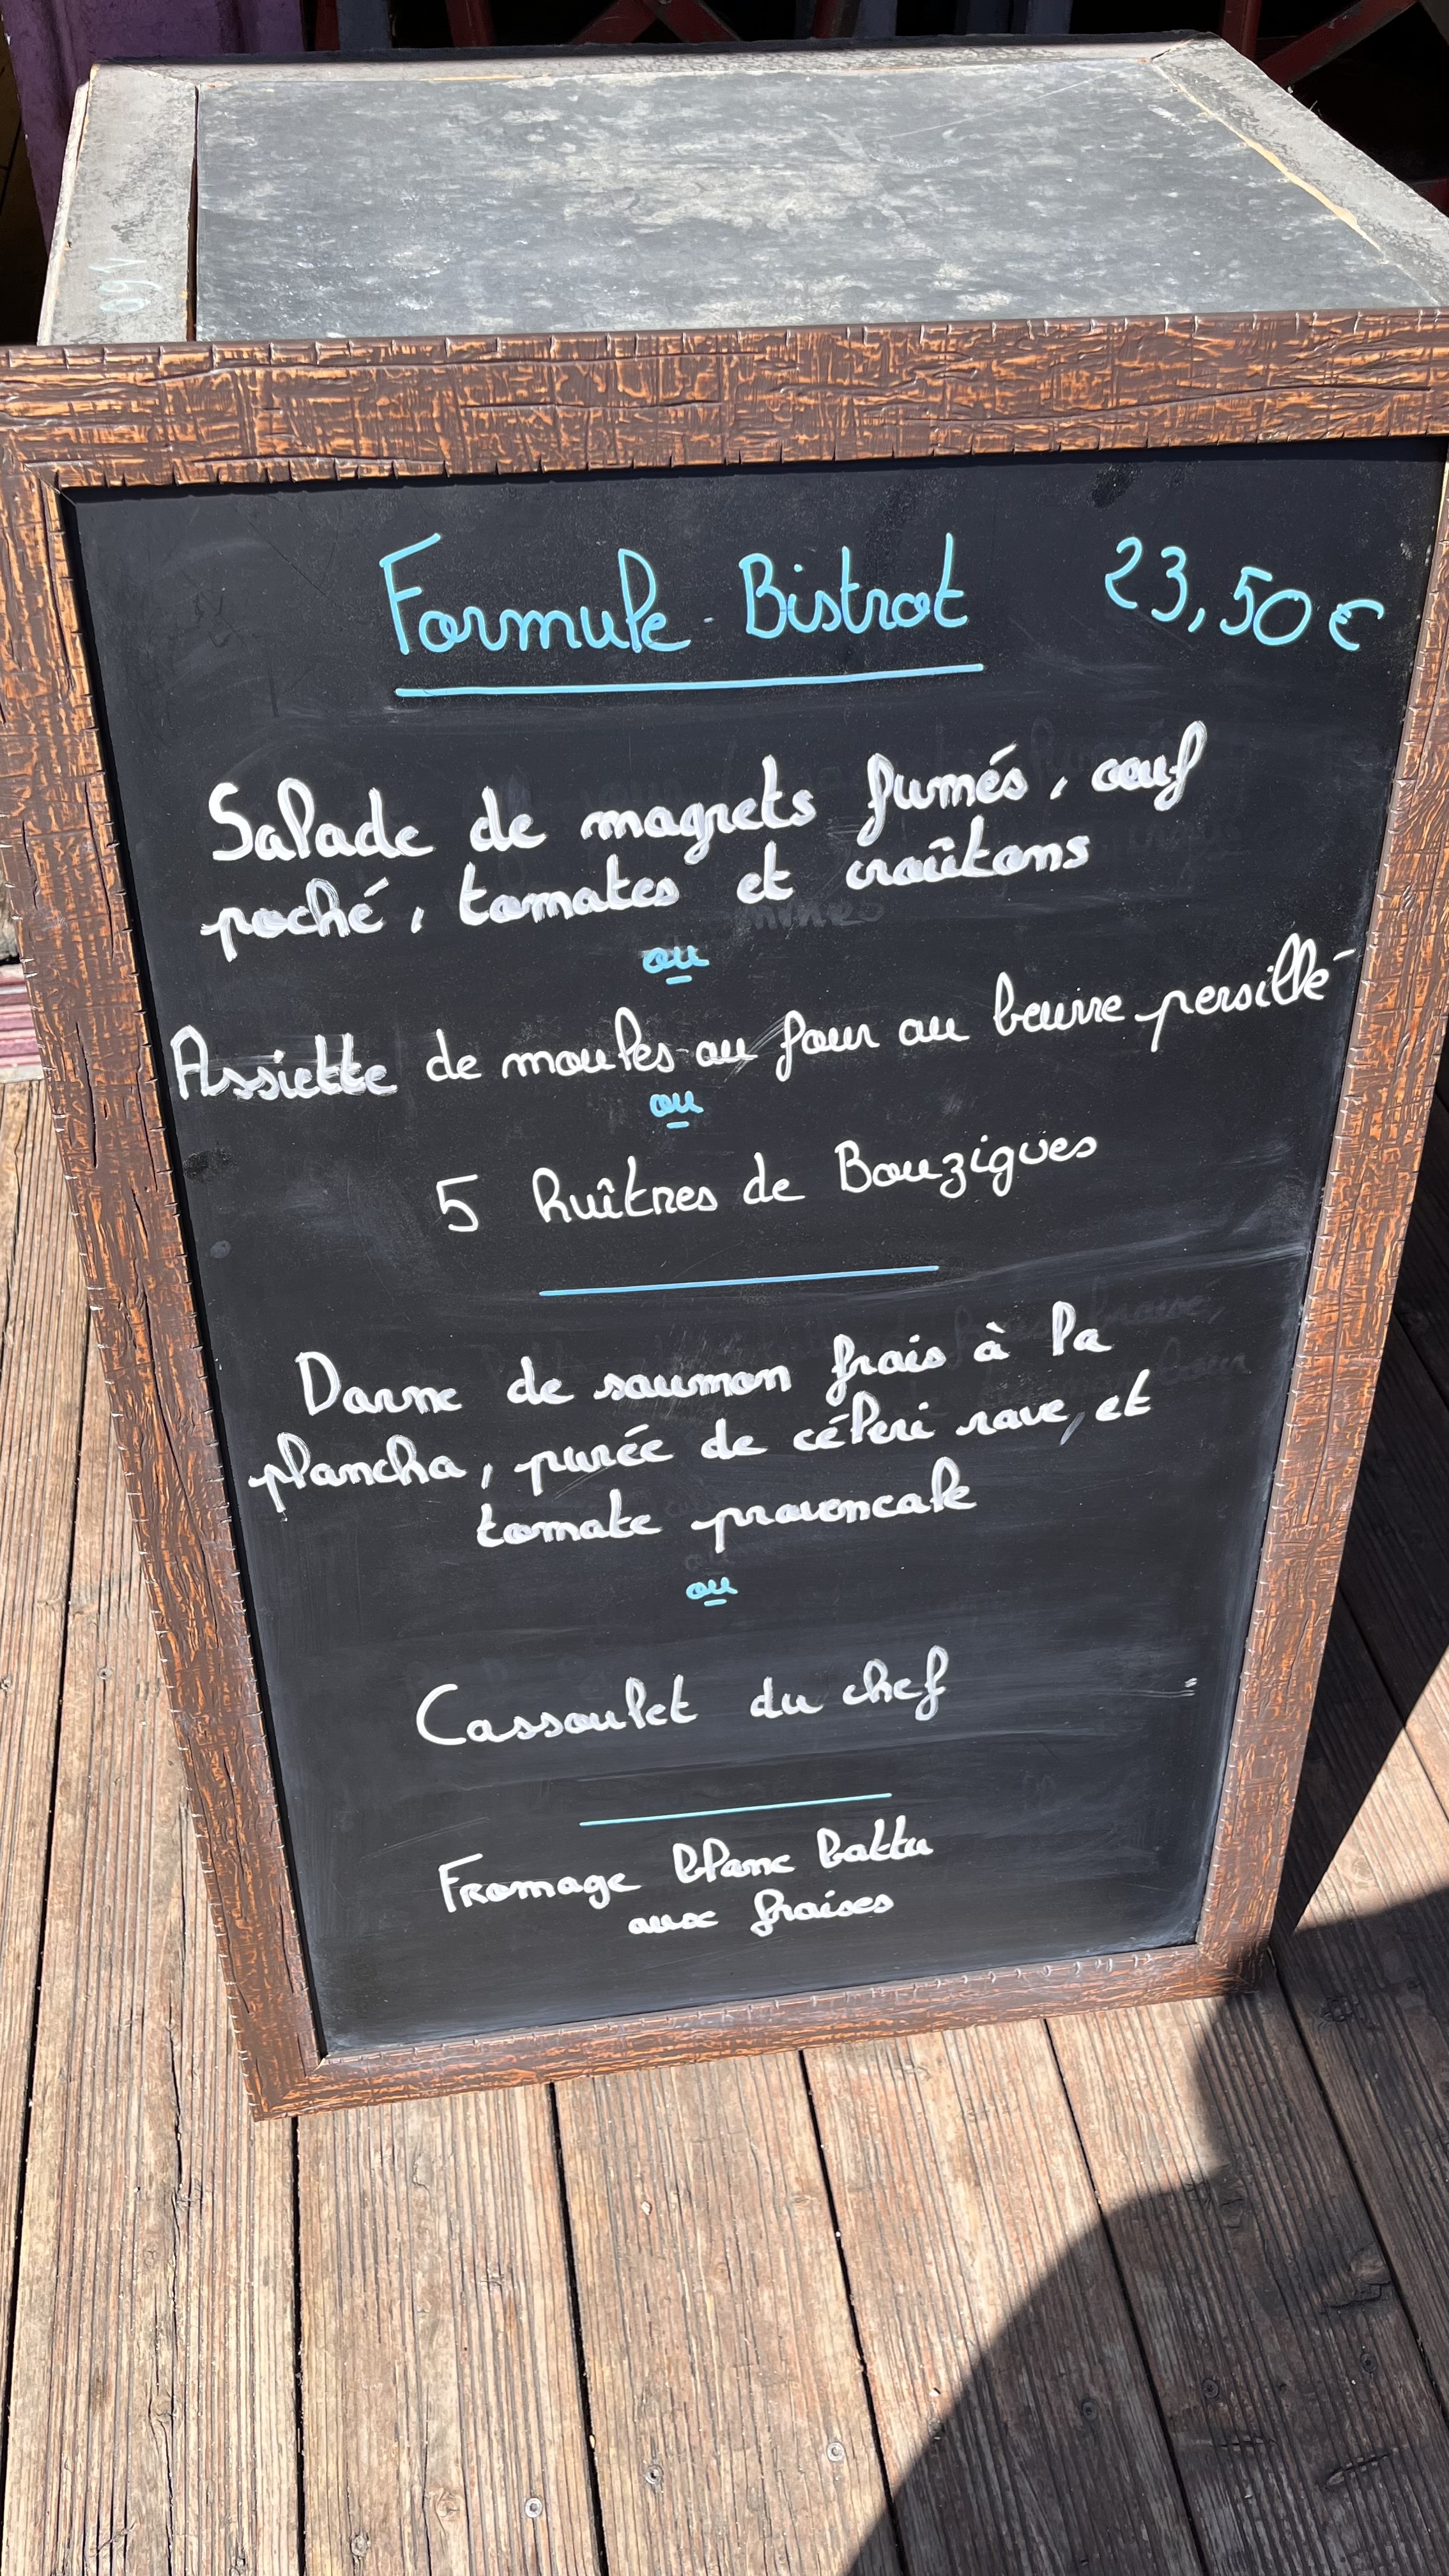 Formule Bistrot 23,50€
Salade de magrets fumés, œuf
poché, tomates et croûtons
ou
Assiette de moules au four au beurre persillé
ou
5 huîtres de Bouzigues
Darne de saumon frais à la
plancha, purée de céleri rave, et
tomate provencale
ou
Cassoulet du chef
Fromage blanc battu
aux fraises